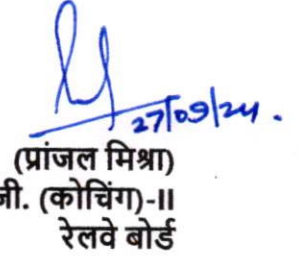 27/09/24.
(प्रांजल मिश्रा)
जी. (कोचिंग)-II
रेलवे बोर्ड